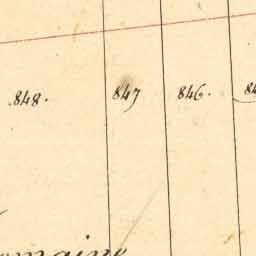 848. 847 846.
omaine